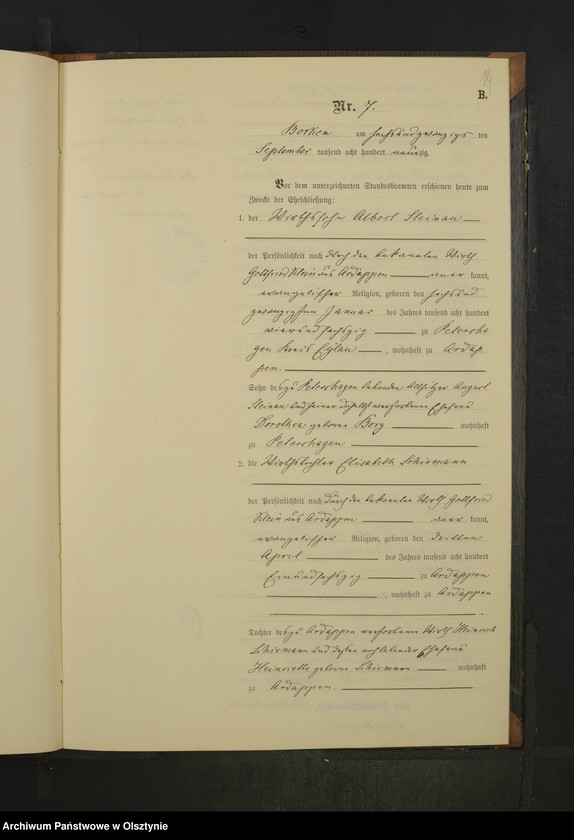 14
B.
Nr. 7.
Borken am sechsundzwanzigsten
September tausend acht hundert neunzig.
Vor dem unterzeichneten Standesbeamten erschienen heute zum
Zwecke der Eheschließung:
1. der Wirthssohn Albert Steinau
der Persönlichkeit nach durch den bekannten Wirth
Gottfried Klein aus Ardappen aner kannt,
evangelischer Religion, geboren den sechsund
zwanzigsten Januar des Jahres tausend acht hundert
vierundsechszig zu Petersha
gen Kreis Eylau, wohnhaft zu Ardap-
pen.
Sohn des zu Petershagen lebenden Altsitzer August
Steinau und seiner daselbst verstorbenen Ehefrau
Dorothea geborne Borg wohnhaft
zu Petershagen
2. die Wirthstochter Elisabeth Schirmann
der Persönlichkeit nach durch den bekannten Wirth Gottfried
Klein aus Ardappen aner kannt,
evangelischer Religion, geboren den dritten
April des Jahres tausend acht hundert
Einundsechszig zu Ardappen
, wohnhaft zu Ardappen
Tochter des zu Ardappen verstorbenen Wirth Heinrich
Schirmann und dessen noch lebender Ehefrau
Henriette geborne Schirmann wohnhaft
zu Ardappen.
Archiwum Państwowe w Olsztynie